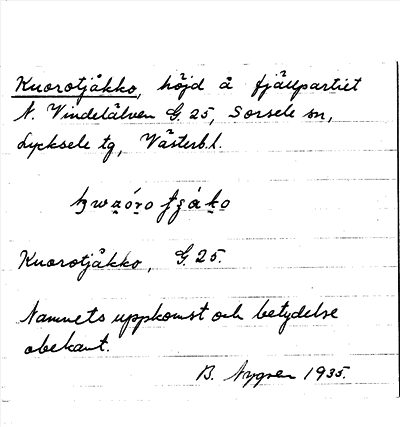 Kuorotjåkko, höjd å fjällpartiet
N. Vindelälven G 25, Sorsele sn,
Lycksele tg, Västerb.l.
Kuorotjåkko, G. 25.
Namnets uppkomst och betydelse
obekant.
B. Nygren 1935.